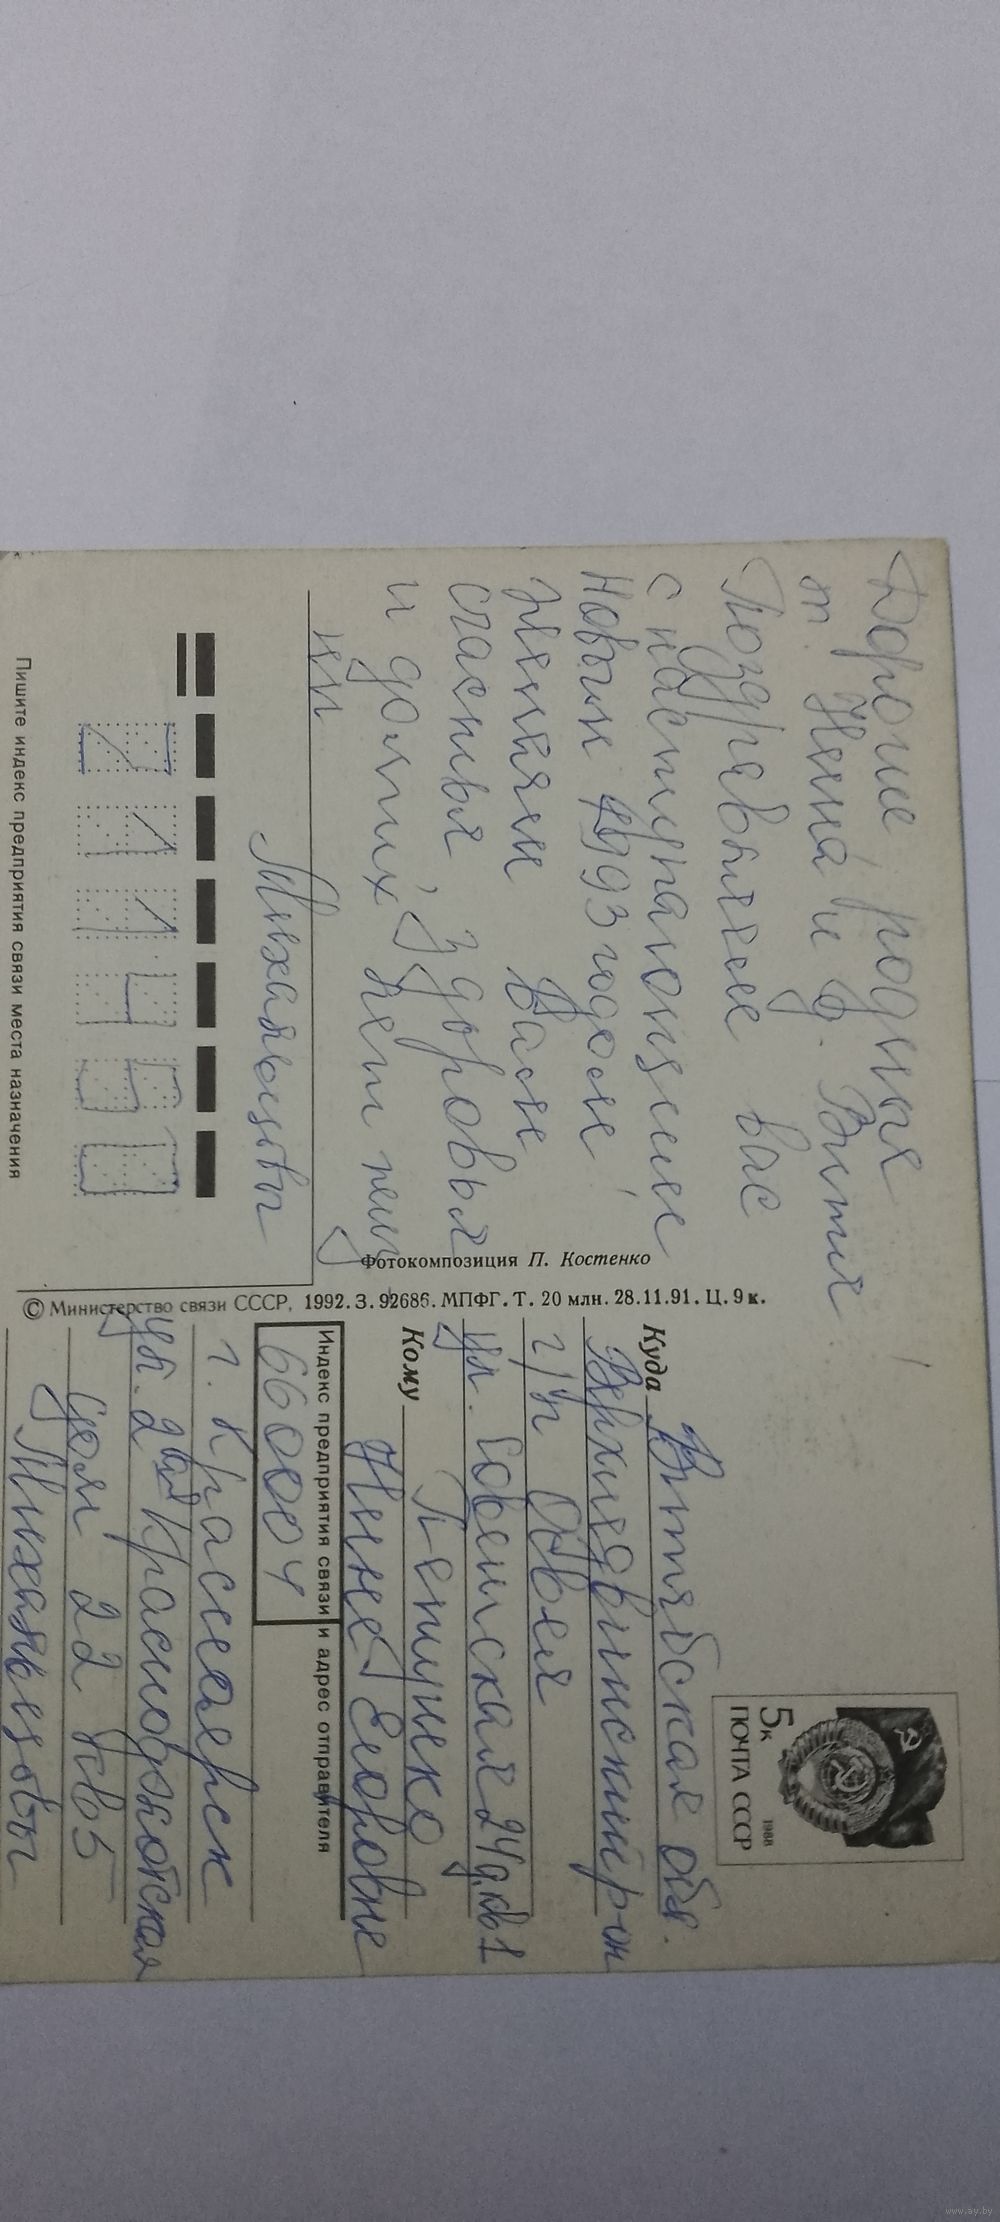 Дорогие родные
т. Нина и д. Витя!
Поздравляем вас
с наступающим
Новым 1993 годом!
Желаем Вам
счастья, здоровья
и долгих лет
Михальцовы
Фотокомпозиция П. Костенко
© Министерство связи СССР, 1992. З. 92686. МПФГ. Т. 20 млн. 28.11.91. Ц. 9 к.
Пишите индекс предприятия связи места назначения
5к
1988
ПОЧТА СССР
Куда Витебская обл.
Верхнедвинский р-он
г/п Освея
ул. Советская 24д. кв 1
Кому
Нине Егоровне
Индекс предприятия связи и адрес отправителя
660004
г. Красноярск
ул. 2ая Краснодонская
дом 22 кв 5
Михальцовы
www.ay.by